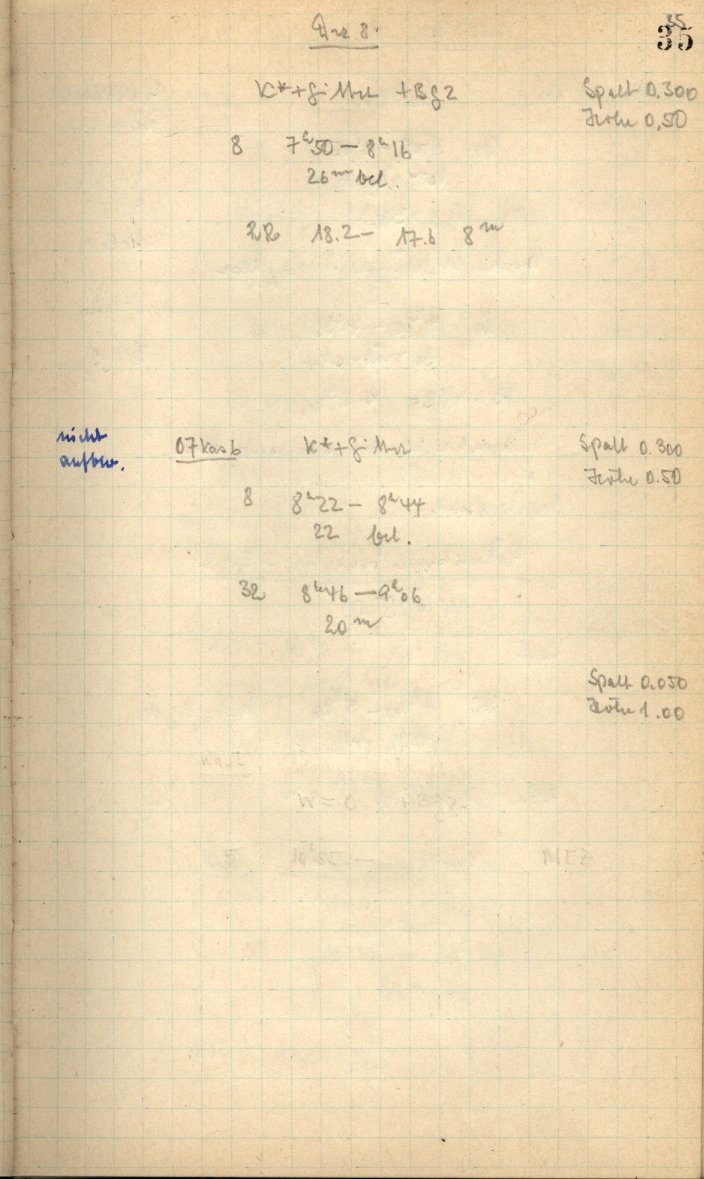 35
35
K*+Gitter +Bg2 Spalt 0.300
Höhe 0,50
8 7ʰ50 — 8ʰ16
26ᵐ bel.
22 18.2 — 17.6 8ᵐ
nicht
aufbew.
07Kas6 K*+Gitter Spalt 0.300
Höhe 0.50
8 8ʰ22 — 8ʰ44
22 bel.
32 8ʰ46 — 9ʰ06
20ᵐ
Spalt 0.050
Höhe 1.00